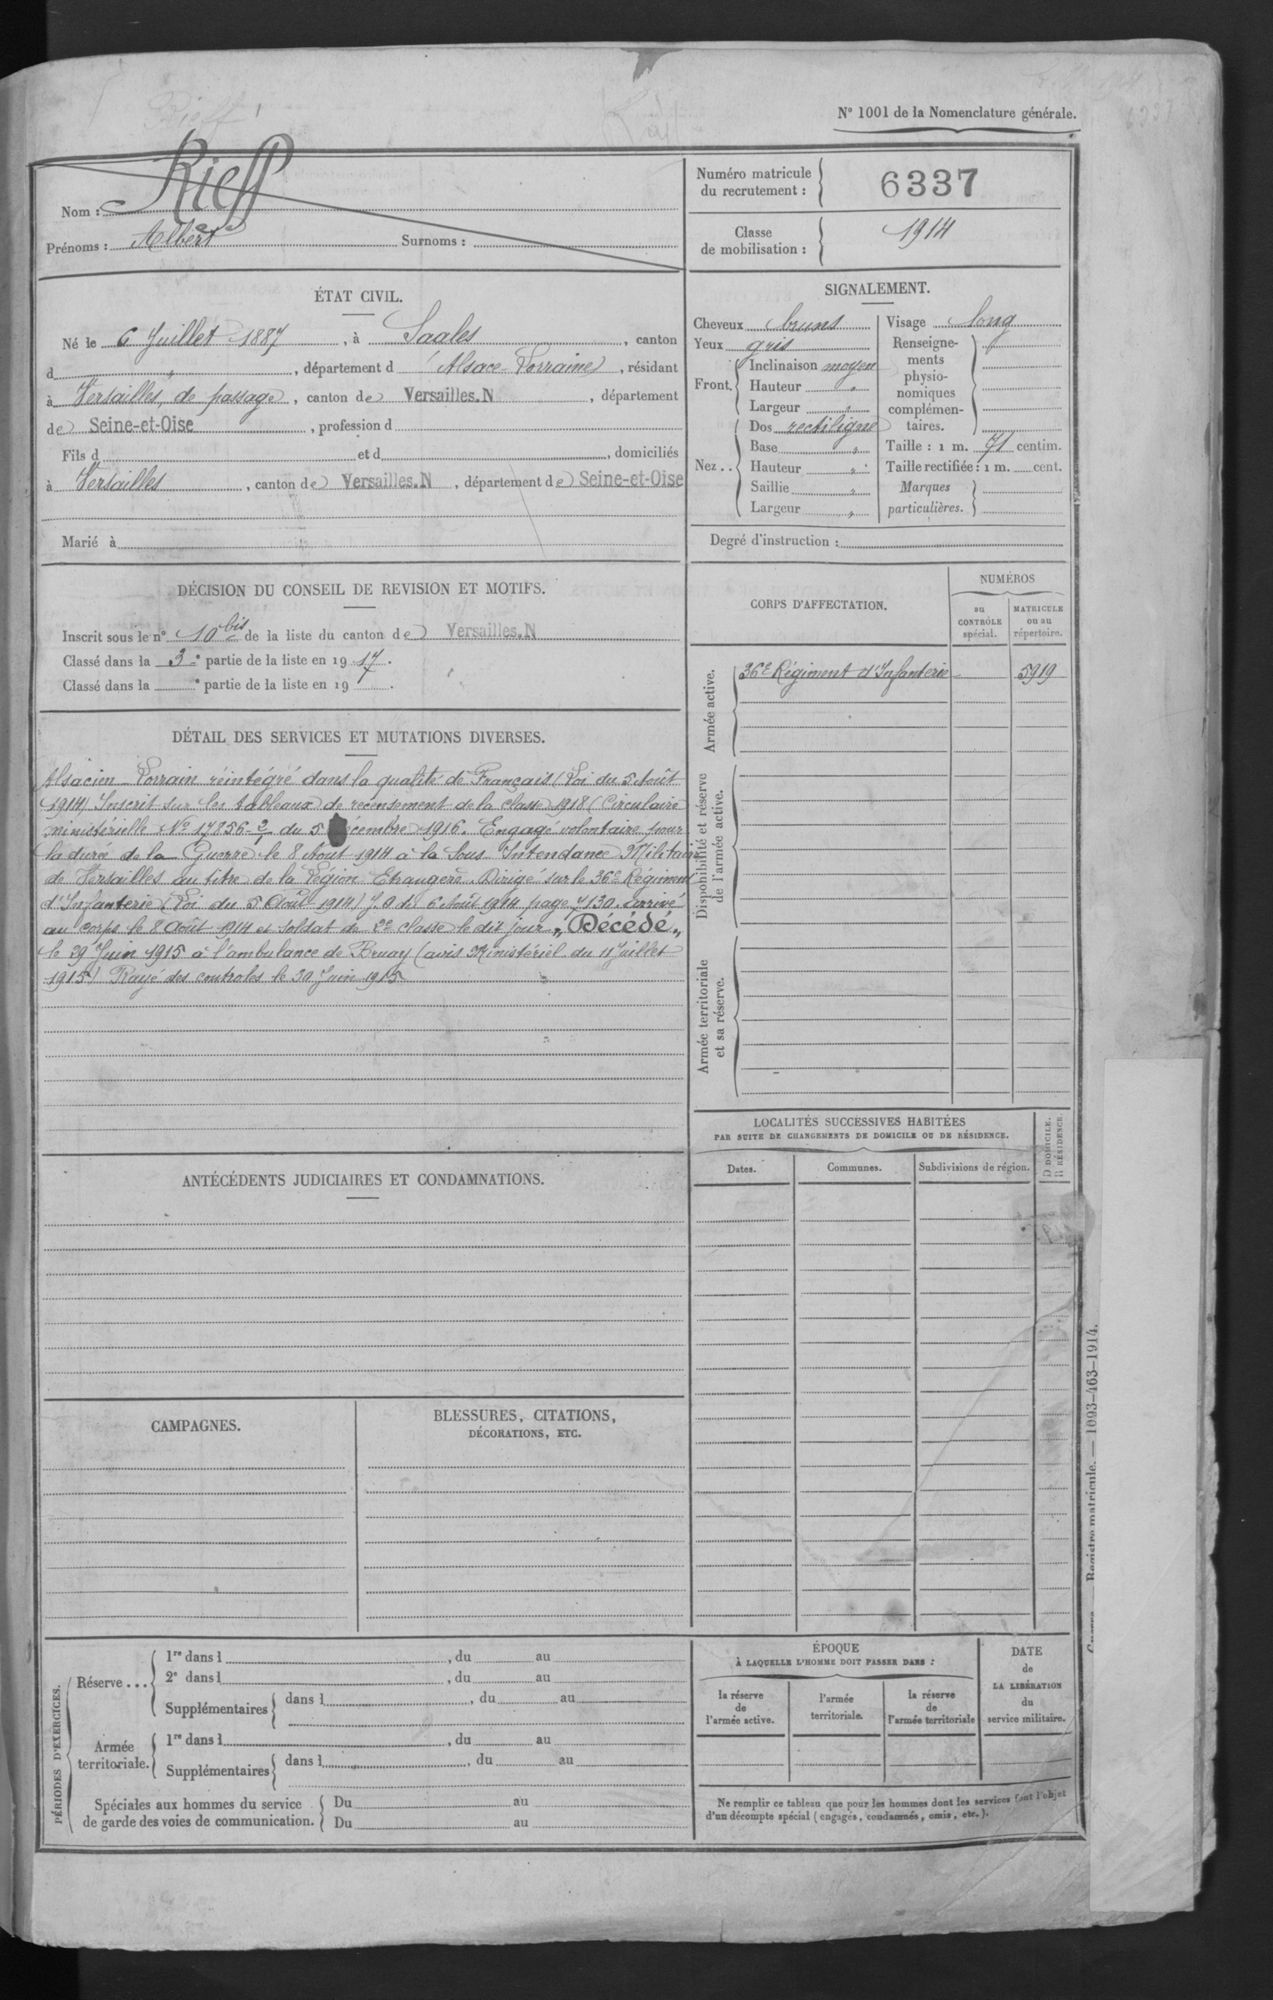 Nº 1001 de la Nomenclature générale.
Nom : Rieff
Prénoms : Albert Surnoms :
Numéro matricule
du recrutement : 6337
Classe
de mobilisation : 1914
ÉTAT CIVIL.
Né le 6 Juillet 1887, à Saales, canton
d " , département d'Alsace-Lorraine, résidant
à Versailles, de passage, canton de Versailles.N, département
de Seine-et-Oise, profession d
Fils d et d , domiciliés
à Versailles, canton de Versailles.N, département de Seine-et-Oise
Marié à
SIGNALEMENT.
Cheveux bruns
Yeux gris
Front. Inclinaison moyen
Hauteur "
Largeur "
Nez.. Dos rectiligne
Base "
Hauteur "
Saillie "
Largeur "
Visage long
Renseigne-
ments
physio-
nomiques
complémen-
taires.
Taille : 1 m. 71 centim.
Taille rectifiée : 1 m. cent.
Marques
particulières.
Degré d'instruction :
DÉCISION DU CONSEIL DE REVISION ET MOTIFS.
Inscrit sous le nº 10 bis de la liste du canton de Versailles.N
Classé dans la 3e partie de la liste en 1917.
Classé dans la e partie de la liste en 19 .
CORPS D'AFFECTATION.
NUMÉROS
au
CONTRÔLE
spécial.
MATRICULE
ou au
répertoire.
Armée active.
36e Régiment d'Infanterie 5919
Disponibilité et réserve
de l'armée active.
Armée territoriale
et sa réserve.
DÉTAIL DES SERVICES ET MUTATIONS DIVERSES.
Alsacien-Lorrain réintégré dans la qualité de Français (Loi du 5 Août
1914) Inscrit sur les tableaux de recensement de la classe 1918 (Circulaire
ministérielle Nº 17856-2/1 du 5 Décembre 1916. Engagé volontaire pour
la durée de la Guerre le 8 Aout 1914 à la Sous Intendance Militaire
de Versailles au titre de la Légion Etrangère. Dirigé sur le 36e Régiment
d'Infanterie (Loi du 5 Août 1914) J.O du 6 Août 1914 page 7130. Arrivé
au corps le 8 Août 1914 et soldat de 2e classe le dit jour. "Décédé"
le 29 Juin 1915 à l'ambulance de Bruay (avis Ministériel du 11 Juillet
1915) Rayé des controles le 30 Juin 1915
LOCALITÉS SUCCESSIVES HABITÉES
PAR SUITE DE CHANGEMENTS DE DOMICILE OU DE RÉSIDENCE.
Dates. Communes. Subdivisions de région. D DOMICILE.
R RÉSIDENCE.
ANTÉCÉDENTS JUDICIAIRES ET CONDAMNATIONS.
CAMPAGNES.
BLESSURES, CITATIONS,
DÉCORATIONS, ETC.
PÉRIODES D'EXERCICES.
Réserve...
1re dans l , du au
2e dans l , du au
Supplémentaires dans l , du au
Armée
territoriale.
1re dans l , du au
Supplémentaires dans l , du au
Spéciales aux hommes du service
de garde des voies de communication.
Du au
Du au
ÉPOQUE
À LAQUELLE L'HOMME DOIT PASSER DANS :
la réserve
de
l'armée active.
l'armée
territoriale.
la réserve
de
l'armée territoriale
DATE
de
LA LIBÉRATION
du
service militaire.
Ne remplir ce tableau que pour les hommes dont les services font l'objet
d'un décompte spécial (engagés, condamnés, omis, etc.).
Registre matricule. — 1093-463-1914.